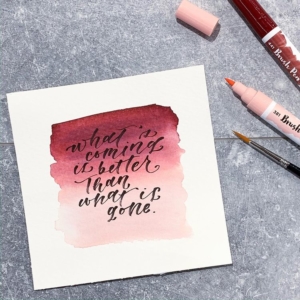 what is
coming
is better
than
what is
gone.
Brush Pen
Brush